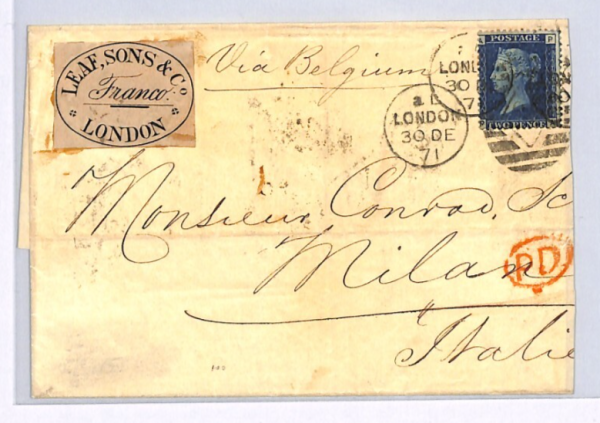 LEAF, SONS & Co
Franco.
LONDON
Via Belgium
LOND
30 D
7
a D
LONDON
30 DE
71
POSTAGE
P
TWO PENCE
Monsieur Conrad, Sc
Milan
PD
Italie